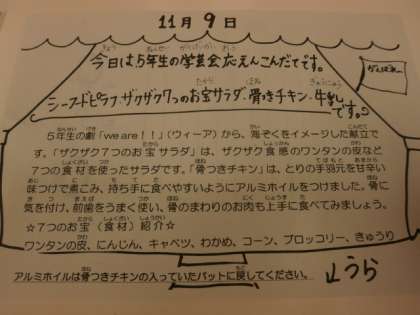 11月9日
今日は5年生の学芸会応えんこんだてです。
がんばれー
シーフードピラフ・ザクザク7つのお宝サラダ・骨つきチキン・牛乳
です。
5年生の劇「we are！！」（ウィーア）から、海ぞくをイメージした献立で
す。「ザクザク7つのお宝サラダ」は、ザクザク食感のワンタンの皮など
7つの食材を使ったサラダです。「骨つきチキン」は、とりの手羽元を甘辛い
味つけで煮こみ、持ち手に食べやすいようにアルミホイルをつけました。骨に
気を付け、前歯をうまく使い、骨のまわりのお肉も上手に食べてみましょう。
☆7つのお宝（食材）紹介☆
ワンタンの皮、にんじん、キャベツ、わかめ、コーン、ブロッコリー、きゅうり
アルミホイルは骨つきチキンの入っていたバットに戻してください。
↓うら